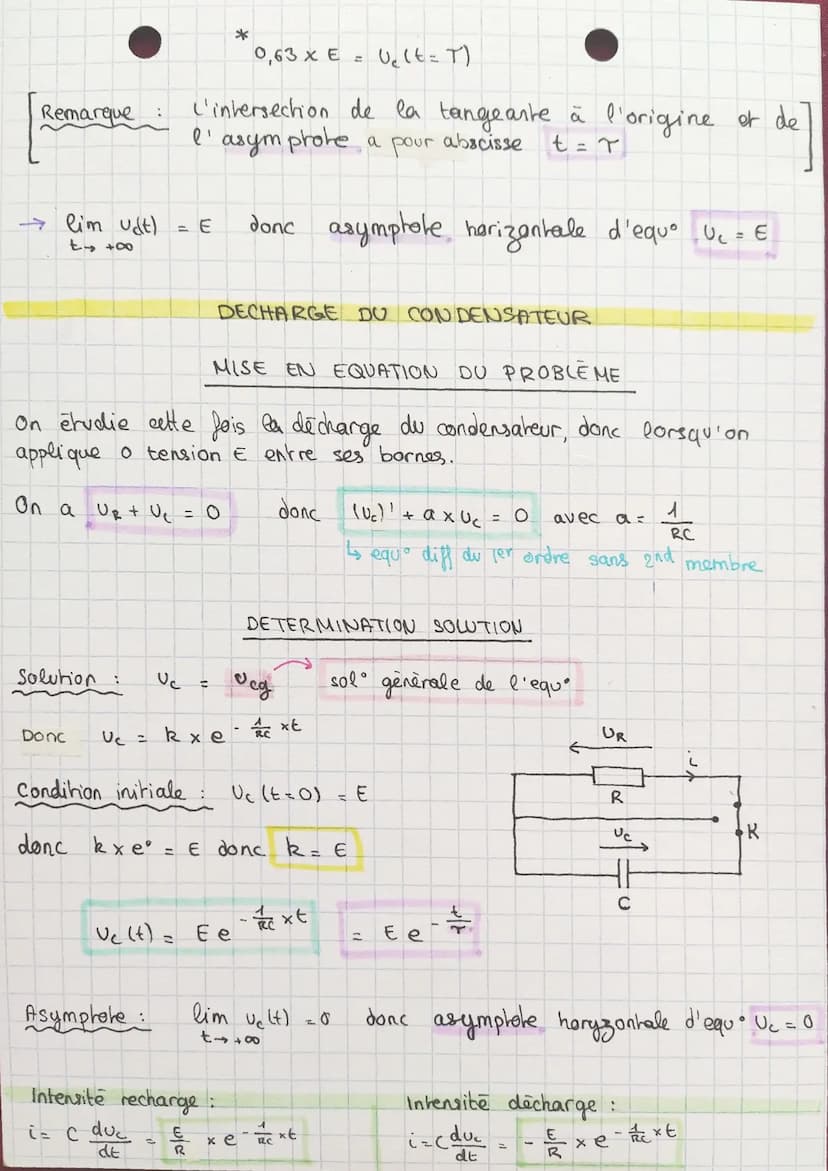 *
0,63 x E = Uc (t = τ)
Remarque : L'intersection de la tangeante à l'origine et de
l'asymptote a pour abscisse t = τ
→ lim Uc(t) = E donc asymptote horizontale d'equ° Uc = E
t→ +∞
DECHARGE DU CONDENSATEUR
MISE EN EQUATION DU PROBLÈME
On étudie cette fois la décharge du condensateur, donc lorsqu'on
applique 0 tension E entre ses bornes.
On a UR + Uc = 0 donc (Uc)' + a x Uc = 0 avec a = 1/RC
↳ equ° diff du 1er ordre sans 2nd membre
DETERMINATION SOLUTION
Solution : Uc = Ucg → sol° générale de l'equ°
Donc Uc = k x e^(- 1/RC xt)
UR
i
R
Condition initiale : Uc (t=0) = E
donc k x e° = E donc k = E
Uc
K
C
Uc (t) = E e^(- 1/RC xt) = E e^(- t/τ)
Asymptote : lim Uc(t) = 0 donc asymptote horyzontale d'equ° Uc = 0
t→ +∞
Intensité recharge :
i = C duc/dt = E/R x e^(- 1/RC xt)
Intensité décharge :
i = C duc/dt = - E/R x e^(- 1/RC xt)